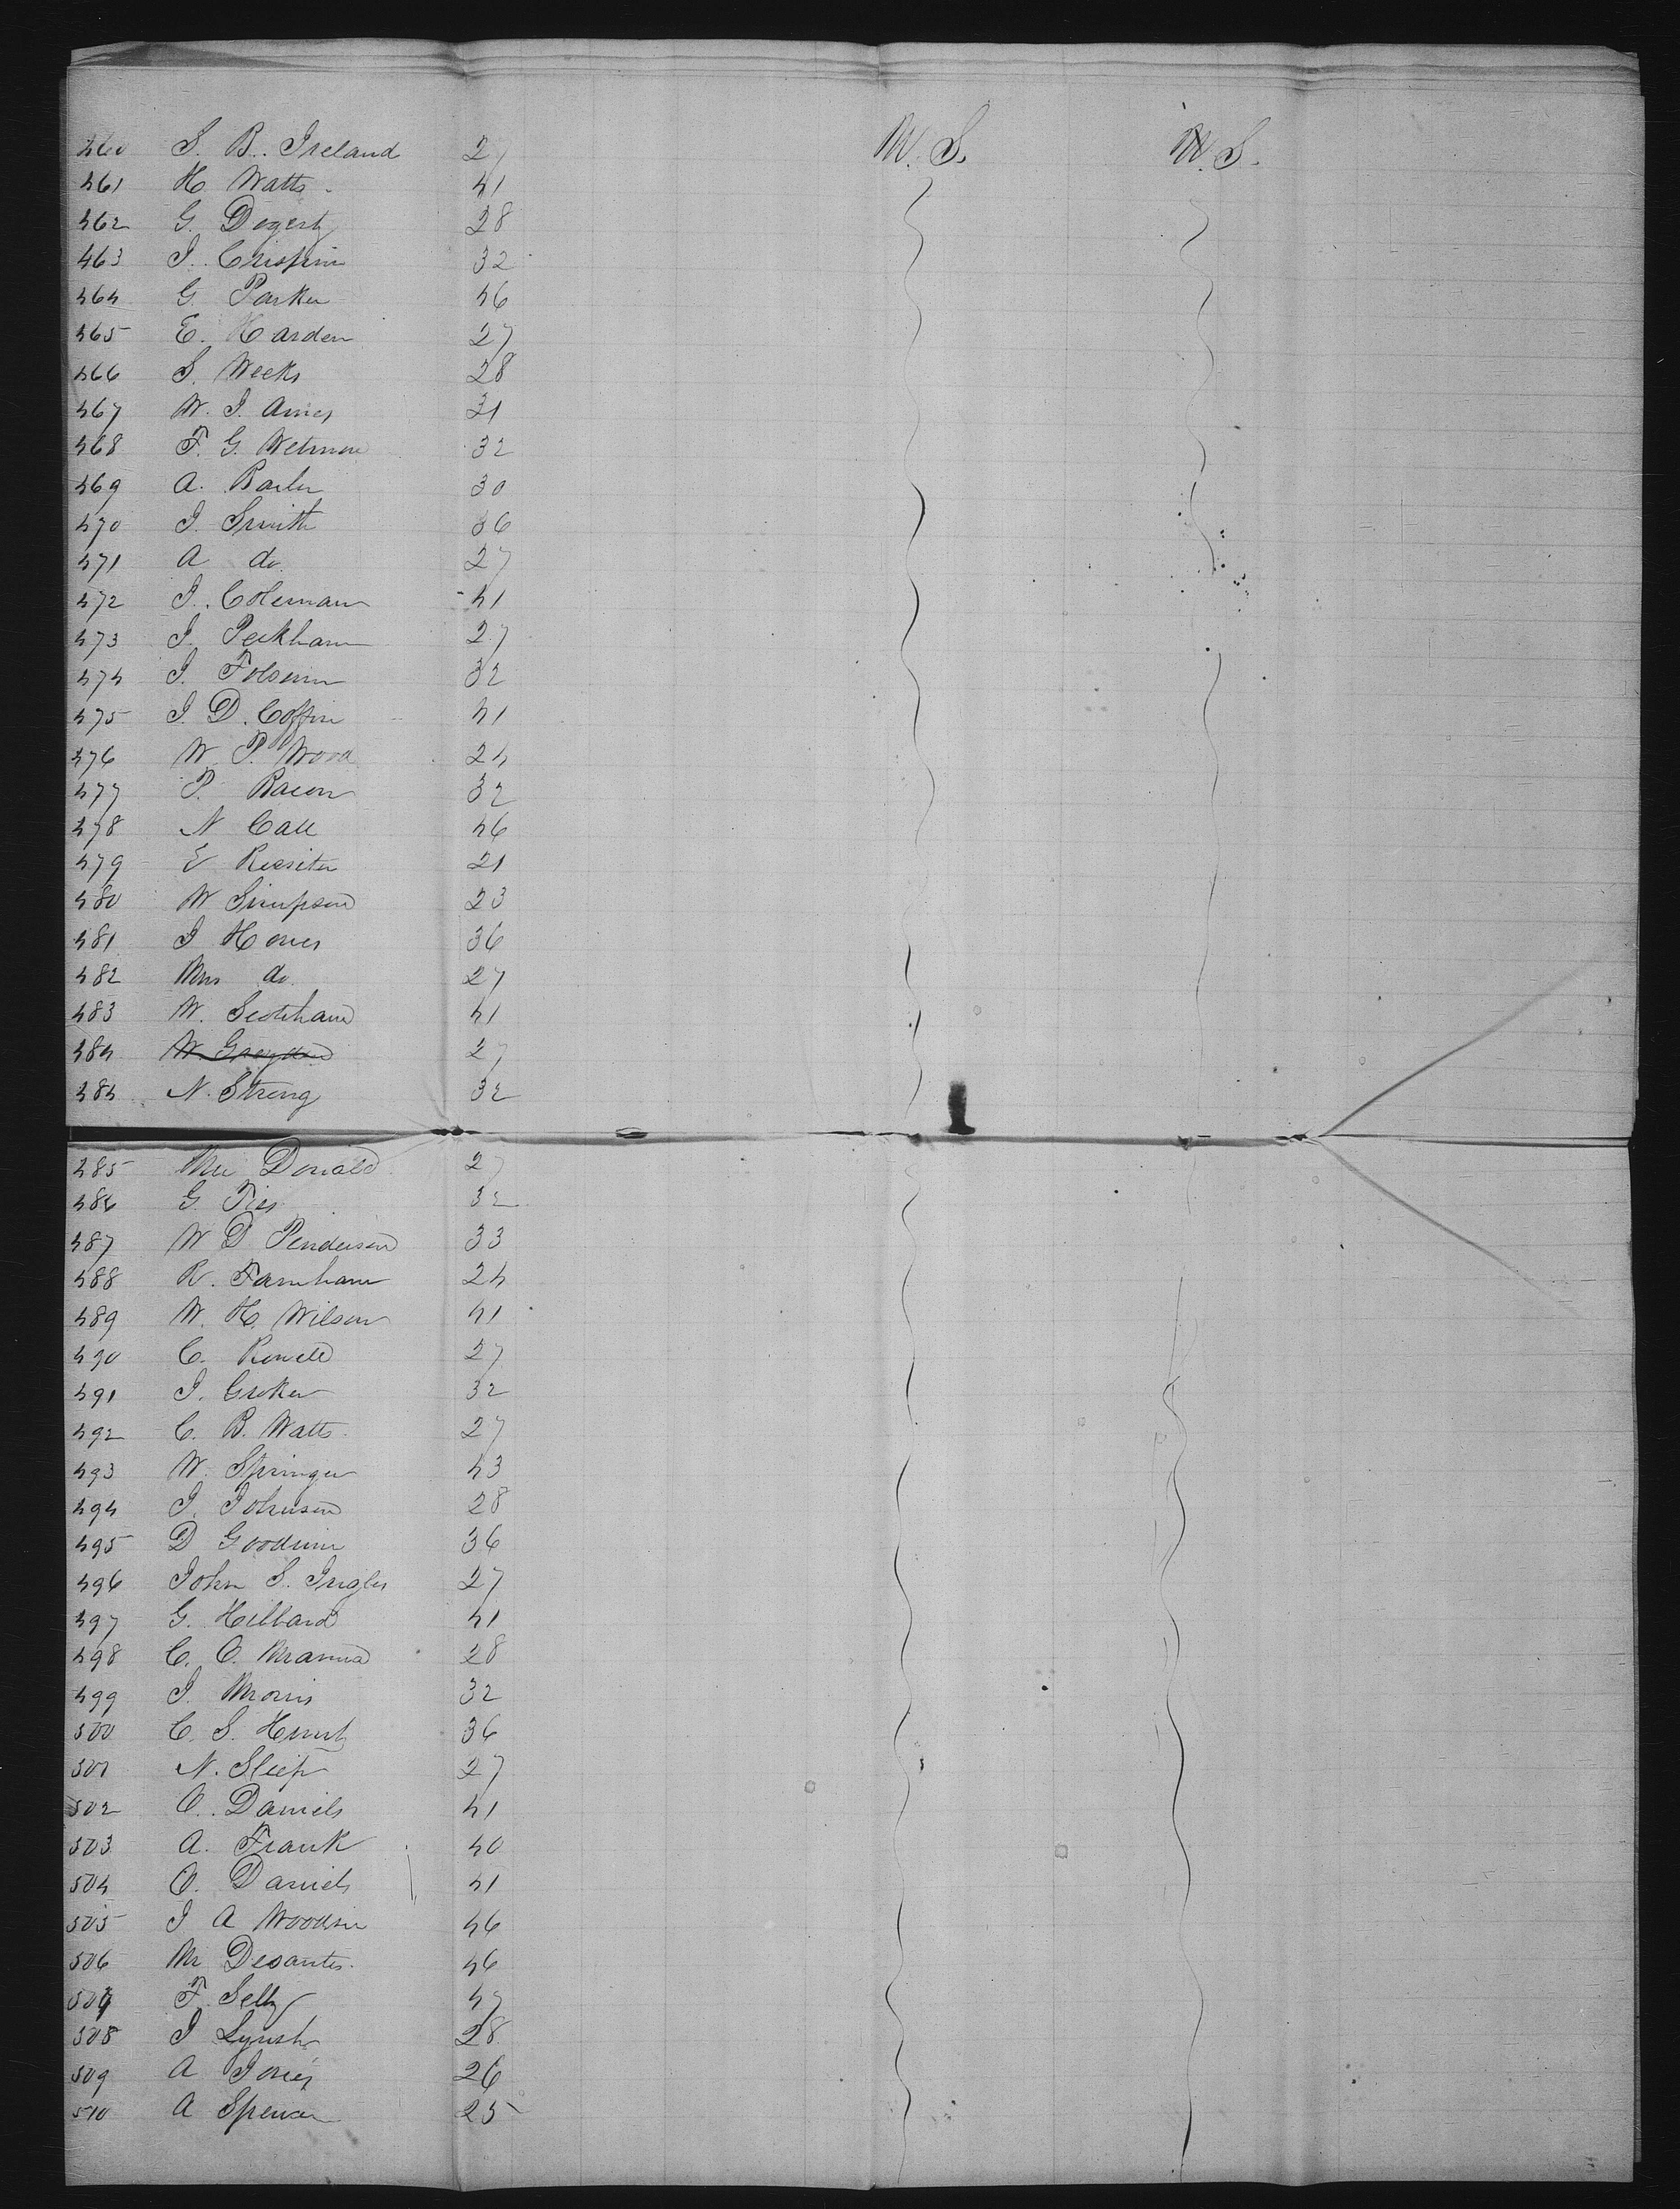 460 S. B. Ireland 27 U. S. U. S.
461 H. Watts 41
462 G. Degerty 28
463 J. Crispin 32
464 G. Parker 46
465 E. Harden 27
466 S. Weeks 28
467 W. J. Ames 31
468 F. G. Wetmore 32
469 A. Barler 30
470 J. Smith 36
471 A do. 27
472 J. Coleman 41
473 J. Peckham 27
474 J. Folsom 32
475 J. D. Coffin 41
476 W. P. Wood 24
477 P. Bacon 32
478 N Call 46
479 E Rossiter 21
480 W Simpson 23
481 J Hones 36
482 Mrs do. 27
483 W. Scotchand 41
484 W. 27
484 N. Strong 32
485 Mc Donald 27
486 G. Fies 32
487 W D Penderson 33
488 R. Farnham 24
489 W. H. Wilson 41
490 C. Rowell 27
491 J. Croker 32
492 C. B. Watts 27
493 W. Springer 43
494 J. Johnson 28
495 D Goodwin 36
496 John S. Ingles 27
497 G. Hibbard 41
498 C. O. 28
499 J. Morris 32
500 C. S. 36
501 N. Sleep 27
502 O. Daniels 41
503 A. Frank 40
504 O. Daniels 41
505 J A Woodsin 46
506 Mr Desantes. 46
507 F. Selly 47
508 J Lynch 28
509 A Jones 26
510 A Spencer 25